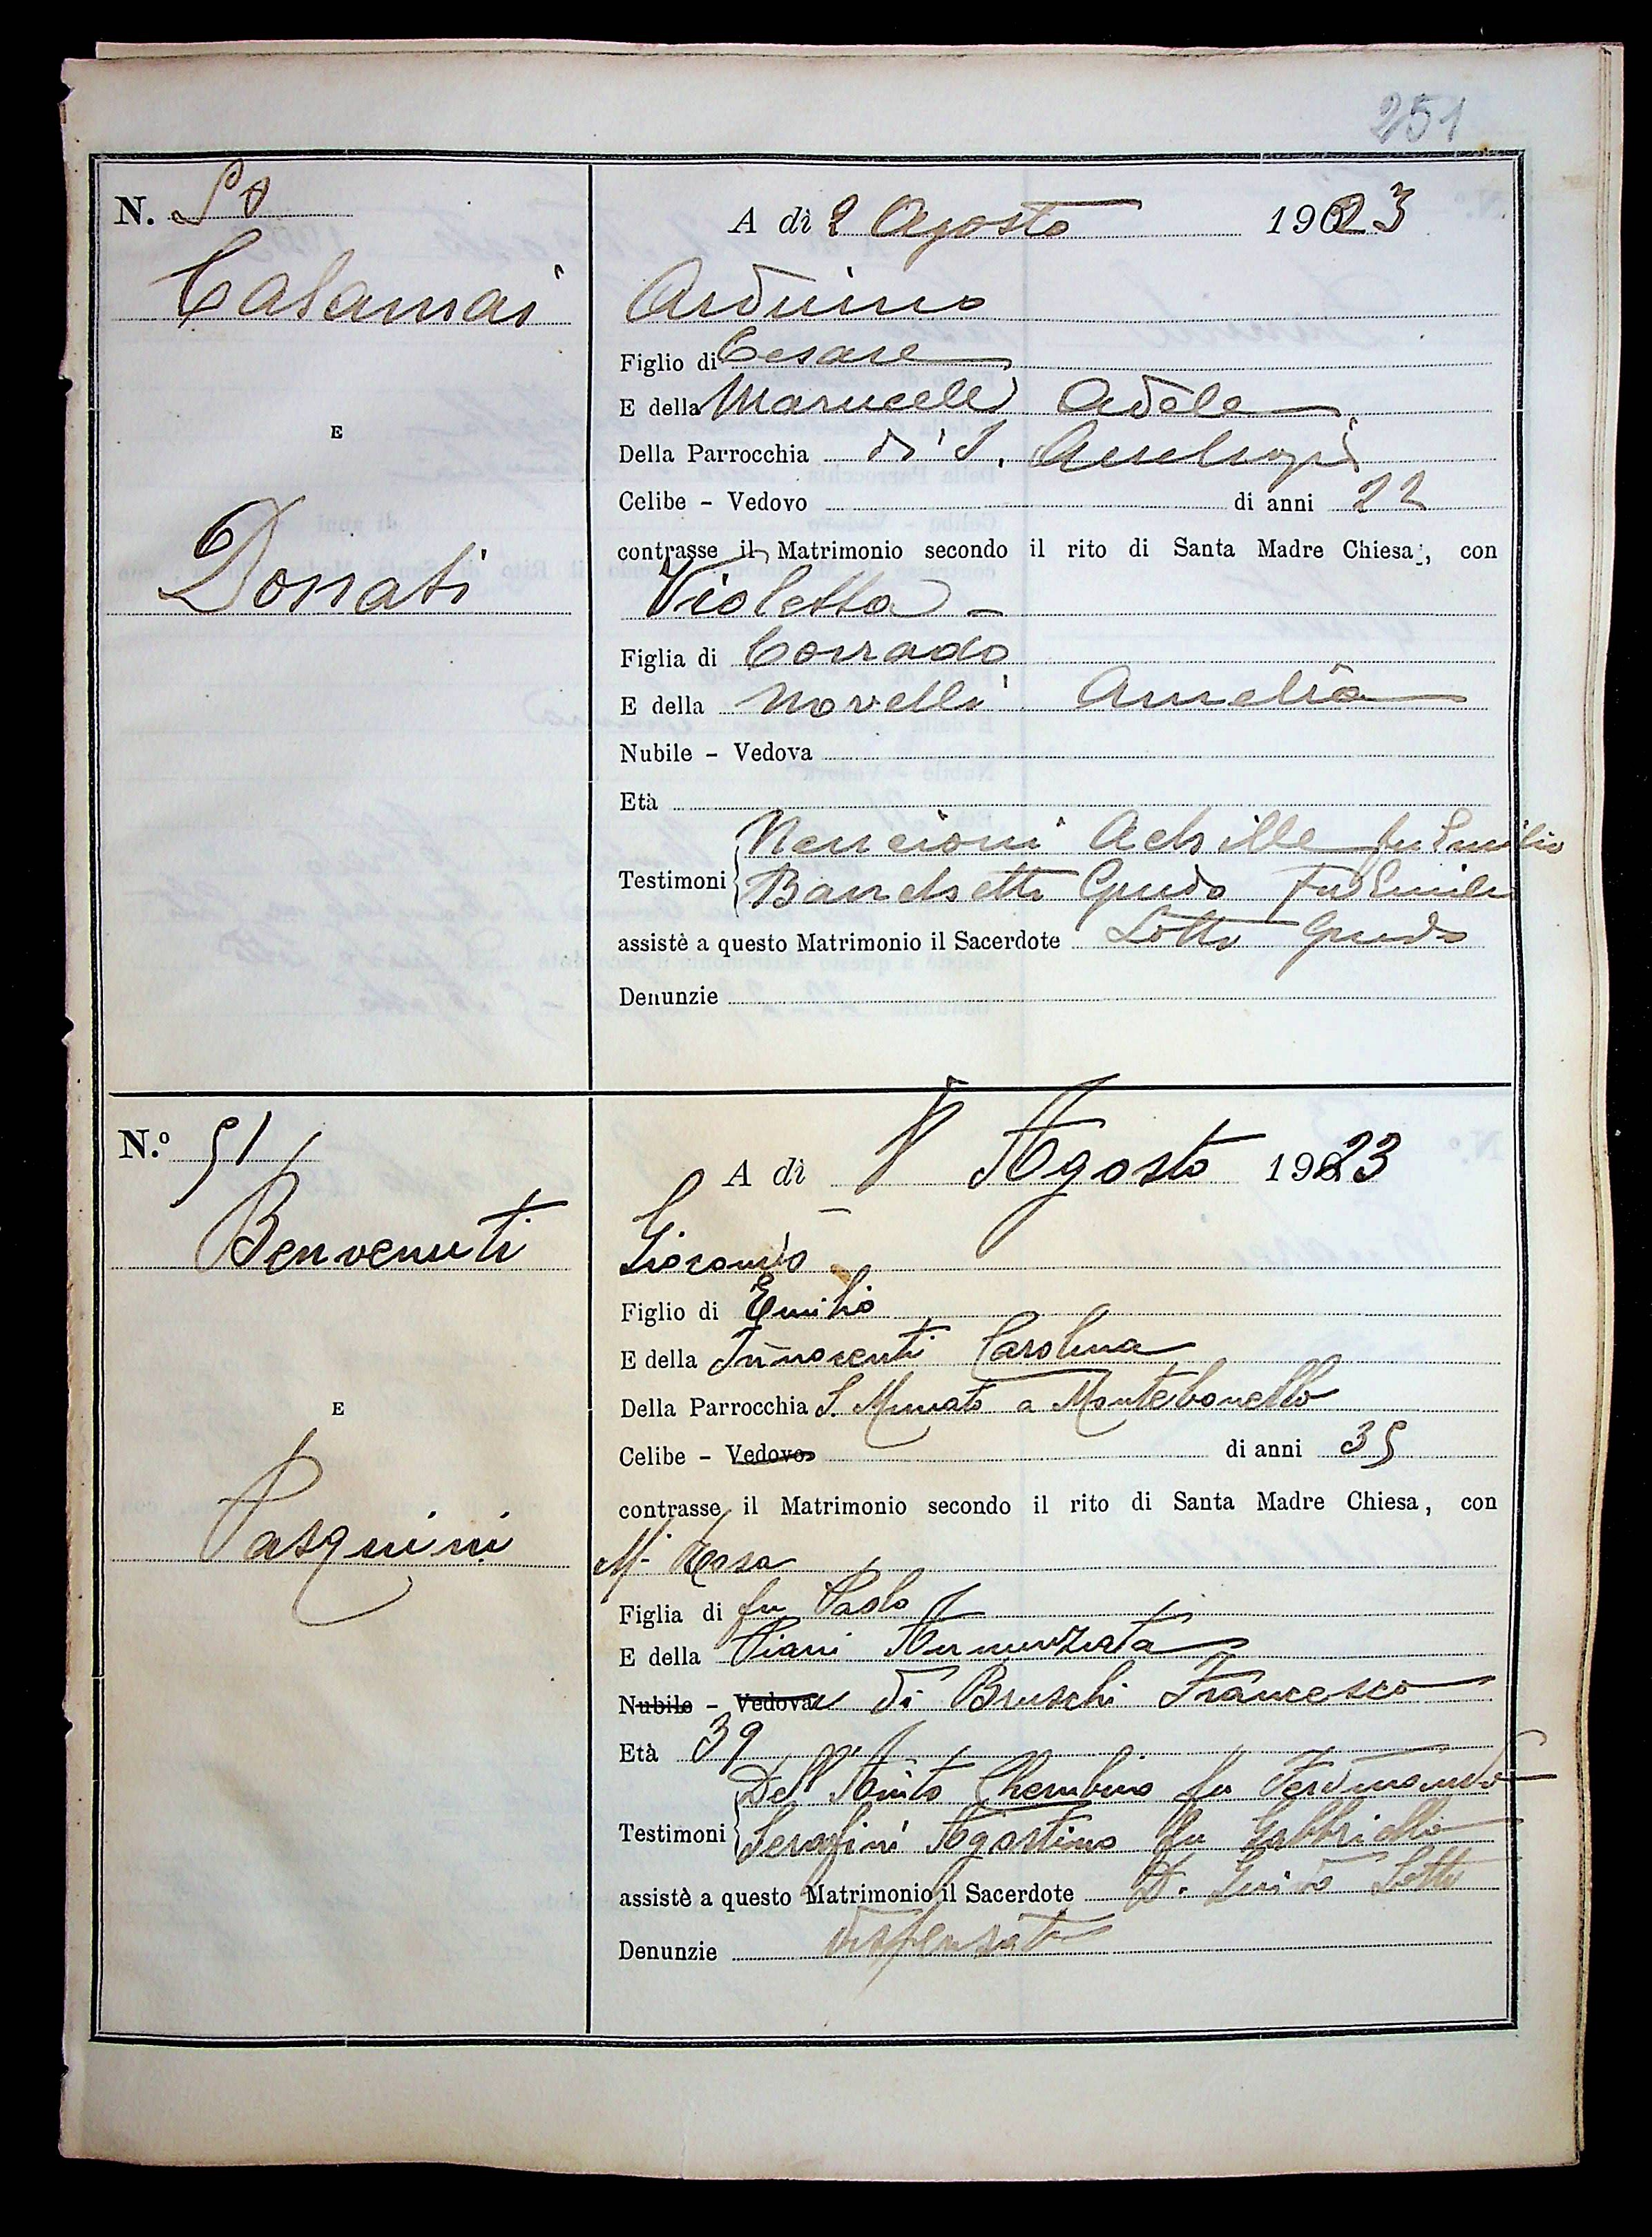 251
N. 50
A dì 2 Agosto 1923
Calamai
Arduino
Figlio di Cesare
E della Marucelli Adele
E
Della Parrocchia di S. Ambrogio
Celibe - Vedovo di anni 22
contrasse il Matrimonio secondo il rito di Santa Madre Chiesa, con
Donati
Violetta -
Figlia di Corrado
E della Novelli Amelia
Nubile - Vedova
Età
Nencioni Achille fu Emilio
Testimoni Banchetti Guido fu Emilio
assistè a questo Matrimonio il Sacerdote Lotti Guido
Denunzie
N.º 51
A dì Agosto 1923
Benvenuti
Giocondo
Figlio di Emilio
E della Innocenti Carolina
E
Della Parrocchia S. Miniato a Montebonello
Celibe - Vedovo di anni 35
contrasse il Matrimonio secondo il rito di Santa Madre Chiesa, con
Pasquini
Mª Rosa
Figlia di fu Paolo
E della Piani Annunziata
Nubile - Vedova di Bruschi Francesco
Età 39
Dell' Cherubino fu Ferdinando
Testimoni Serafini Agostino fu Gabbriello
assistè a questo Matrimonio il Sacerdote D. Guido Lotti
Denunzie dispensati